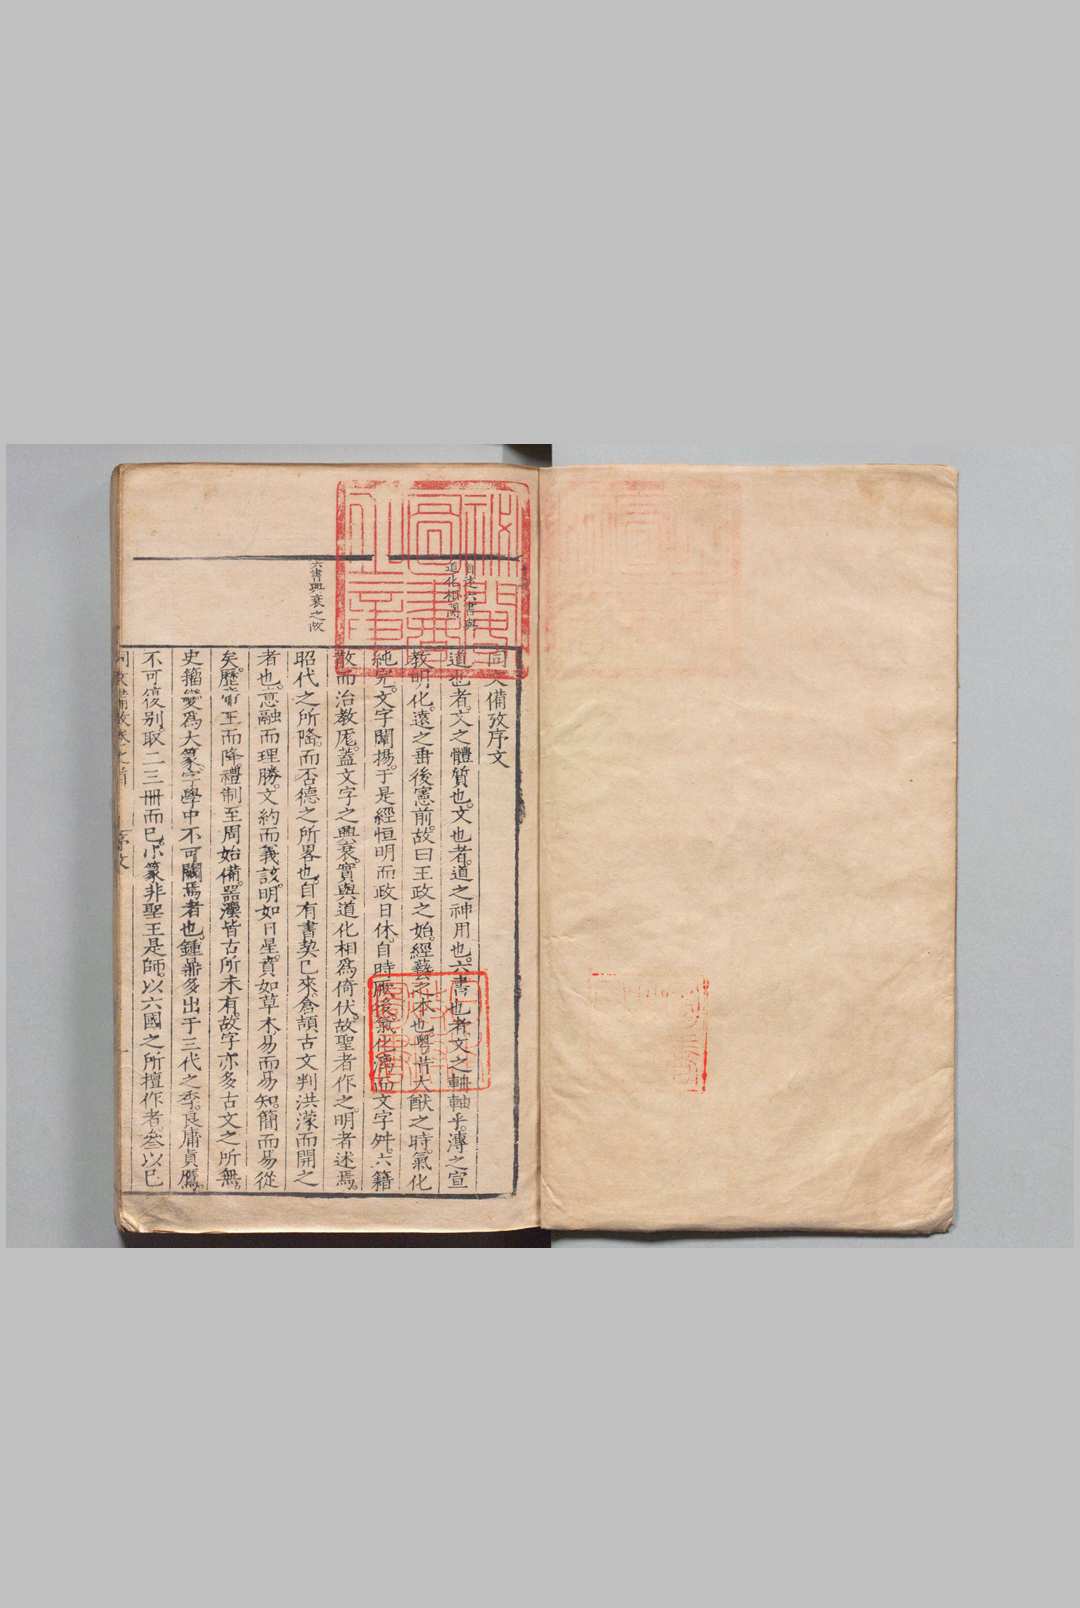 同文備攷序文
道也者文之體質也文也者道之神用也六書也者文之軸乎溥之宣
教明化遠之垂後憲前故曰王政之始經藝之本也粵昔大猷之時氣化
純完文字闡揚于是經恒明而政日休自時厥後氣化漓而文字舛六籍
散而治教厖蓋文字之興衰實與道化相為倚伏故聖者作之明者述焉
昭代之所隆而否德之所畧也自有書契已來倉頡古文判洪濛而開之
者也意融而理勝文約而義該明如日星賁如草木易而易知簡而易從
矣歷帝王而降禮制至周始備器漢皆古所未有故字亦多古文之所無
史籀變為大篆字學中不可闕焉者也鍾鼎多出于三代之季良庸貞贋
不可復别取二三冊而已小篆非聖王是師以六國之所擅作者叅以已
自述六書與
道化相關
六書興衰之故
同文備攷卷之首
序文
一
祕閣
圖書
之章